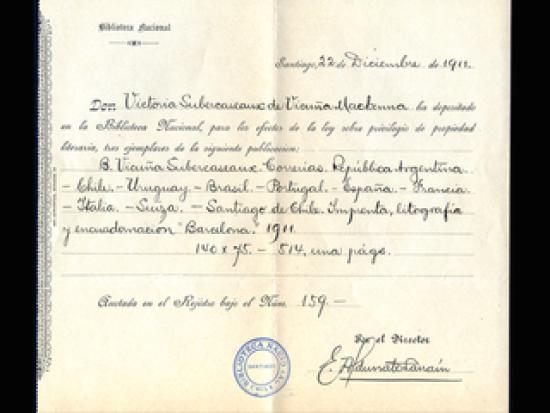 Biblioteca Nacional
Santiago, 22 de Diciembre de 1911.
Don Victoria Subercaseaux de Vicuña Mackenna ha depositado
en la Biblioteca Nacional, para los efectos de la ley sobre privilegio de propiedad
literaria, tres ejemplares de la siguiente publicacion:
B. Vicuña Subercaseaux. Correrias. República Arjentina.
- Chile. - Uruguay. - Brasil. - Portugal. - España. - Francia.
- Italia. - Suiza. - Santiago de Chile. Imprenta, litografía
y encuadernacion "Barcelona." 1911.
140 x 75. - 514, una págs.
Anotada en el Registro bajo el Núm. 159. -
Por el Director
BIBLIOTECA NACIONAL
SANTIAGO
CHILE